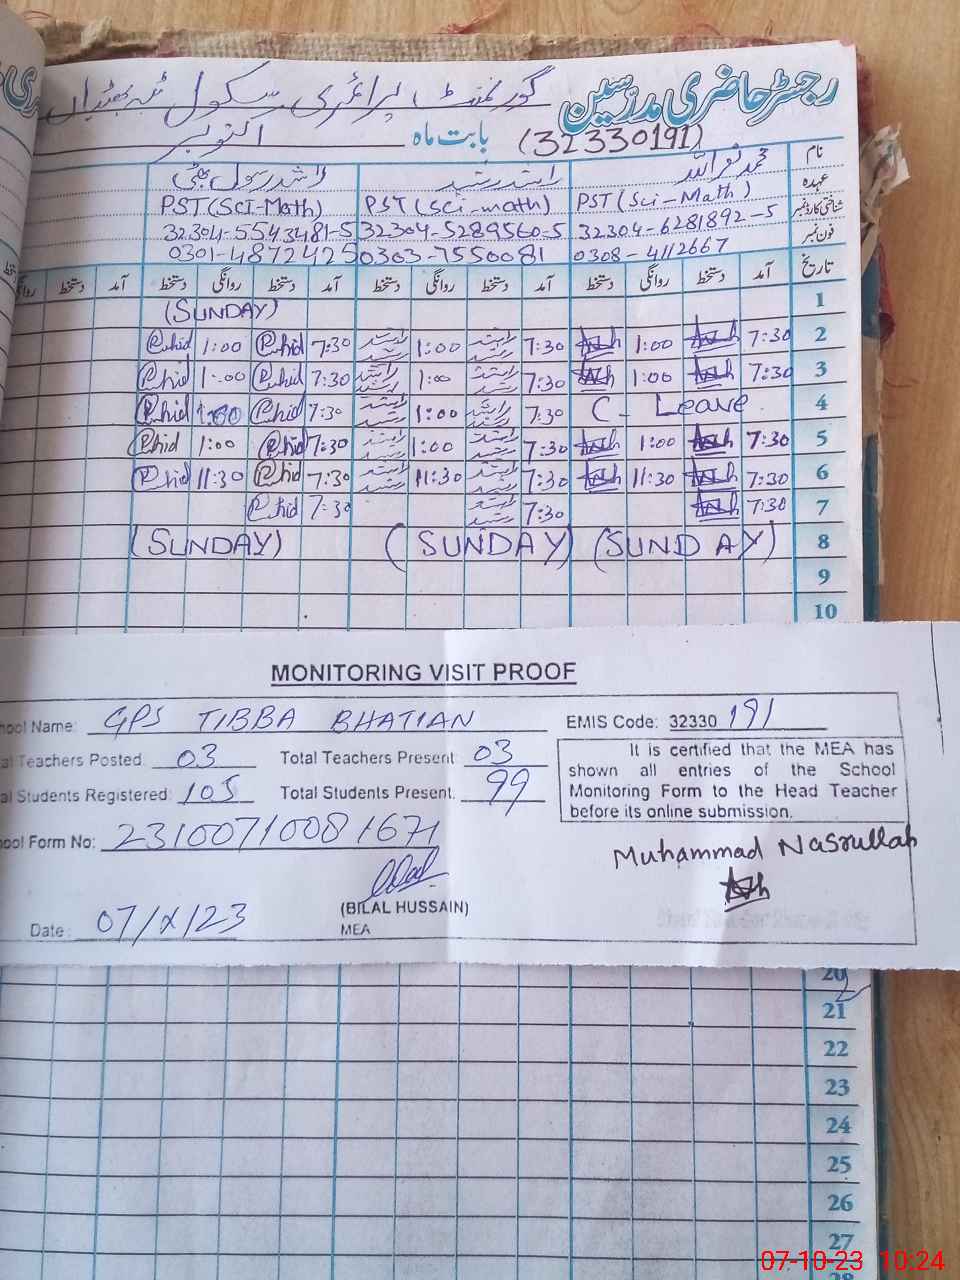 رجسٹر حاضری مدرسین گورنمنٹ پرائمری سکول ٹبہ بھٹیاں
(32330191) بابت ماہ اکتوبر
نام محمد نصراللہ راشد رشید راشد رسول بھٹی
عہدہ PST (Sci-Math) PST (Sci-math) PST (SCI-Math)
شناختی کارڈ نمبر 32304-6281892-5 32304-5289560-5 32304-5543481-5
فون نمبر 0308-4112667 0303-7550081 0301-4872425
تاریخ آمد دستخط روانگی دستخط آمد دستخط روانگی دستخط آمد دستخط روانگی دستخط آمد دستخط
1 (SUNDAY)
2 7:30 1:00 7:30 راشد رشید 1:00 راشد رشید 7:30 Rhid 1:00 Rhid
3 7:30 1:00 7:30 راشد رشید 1:00 راشد رشید 7:30 Rhid 1:00 Rhid
4 C- Leave 7:30 راشد رشید 1:00 راشد رشید 7:30 Rhid 1:00 Rhid
5 7:30 1:00 7:30 راشد رشید 1:00 راشد رشید 7:30 Rhid 1:00 Rhid
6 7:30 11:30 7:30 راشد رشید 11:30 راشد رشید 7:30 Rhid 11:30 Rhid
7 7:30 7:30 راشد رشید 7:30 Rhid
8 (SUNDAY) (SUNDAY) (SUNDAY)
9
10
MONITORING VISIT PROOF
ool Name: GPS TIBBA BHATIAN EMIS Code: 32330 191
al Teachers Posted: 03 Total Teachers Present: 03
al Students Registered: 105 Total Students Present. 99
It is certified that the MEA has
shown all entries of the School
Monitoring Form to the Head Teacher
before its online submission.
ool Form No: 23100710081671
Muhammad Nasrullah
(BILAL HUSSAIN)
MEA
Date: 07/X/23
20
21
22
23
24
25
26
27
28
07-10-23 10:24